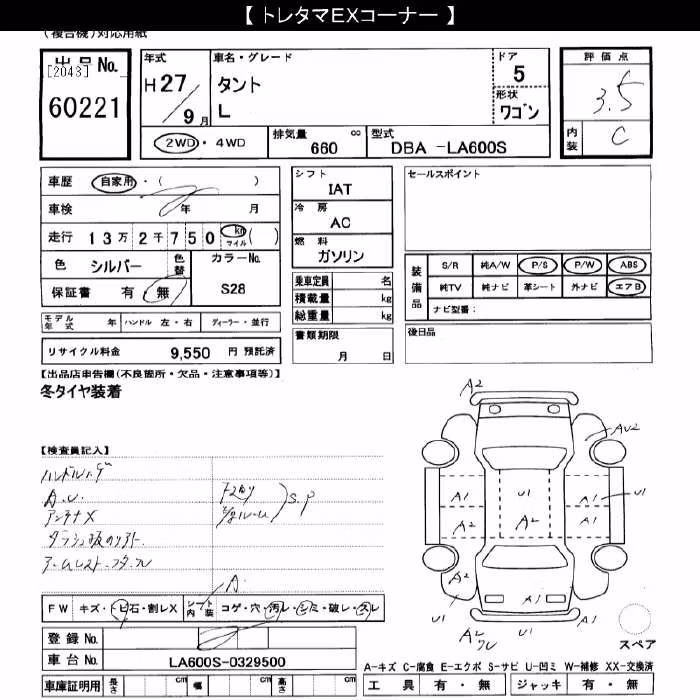 【 トレタマEXコーナー 】
(複合機)対応用紙
出品No.
[2043]
60221
年式
H27/9月
車名・グレード
タント
L
ドア
5
形状
ワゴン
2WD・4WD
排気量 660 cc
型式 DBA -LA600S
評価点
3.5
内装 C
車歴 自家用・( )
車検 年 月
走行 13万2千750 km マイル ( )
色 シルバー 色替
カラーNo.
S28
保証書 有 無
シフト
IAT
冷房
AC
燃料
ガソリン
乗車定員 名
積載量 kg
総重量 kg
書類期限
月 日
セールスポイント
装備品
S/R 純A/W P/S P/W ABS
純TV 純ナビ 革シート 外ナビ エアB
ナビ型番：
後日品
モデル年式 年 ハンドル 左・右 ディーラー・並行
リサイクル料金 9,550 円 預託済
【出品店申告欄(不良箇所・欠品・注意事項等)】
冬タイヤ装着
【検査員記入】
A.U.
アンテナX
S.P
A.
FW キズ・トビ石・割レX シート内装 コゲ・穴・汚レ・シミ・破レ・スレ
登録No.
車台No. LA600S-0329500
車庫証明用 長さ cm 幅 cm 高さ cm
A2
AU2
A1 U1 A1 U1
A1 A2 A1
A2 A2
U1 A1 A1 U1
A2
スペア
A-キズ C-腐食 E-エクボ S-サビ U-凹ミ W-補修 XX-交換済
工具 有・無 ジャッキ 有・無